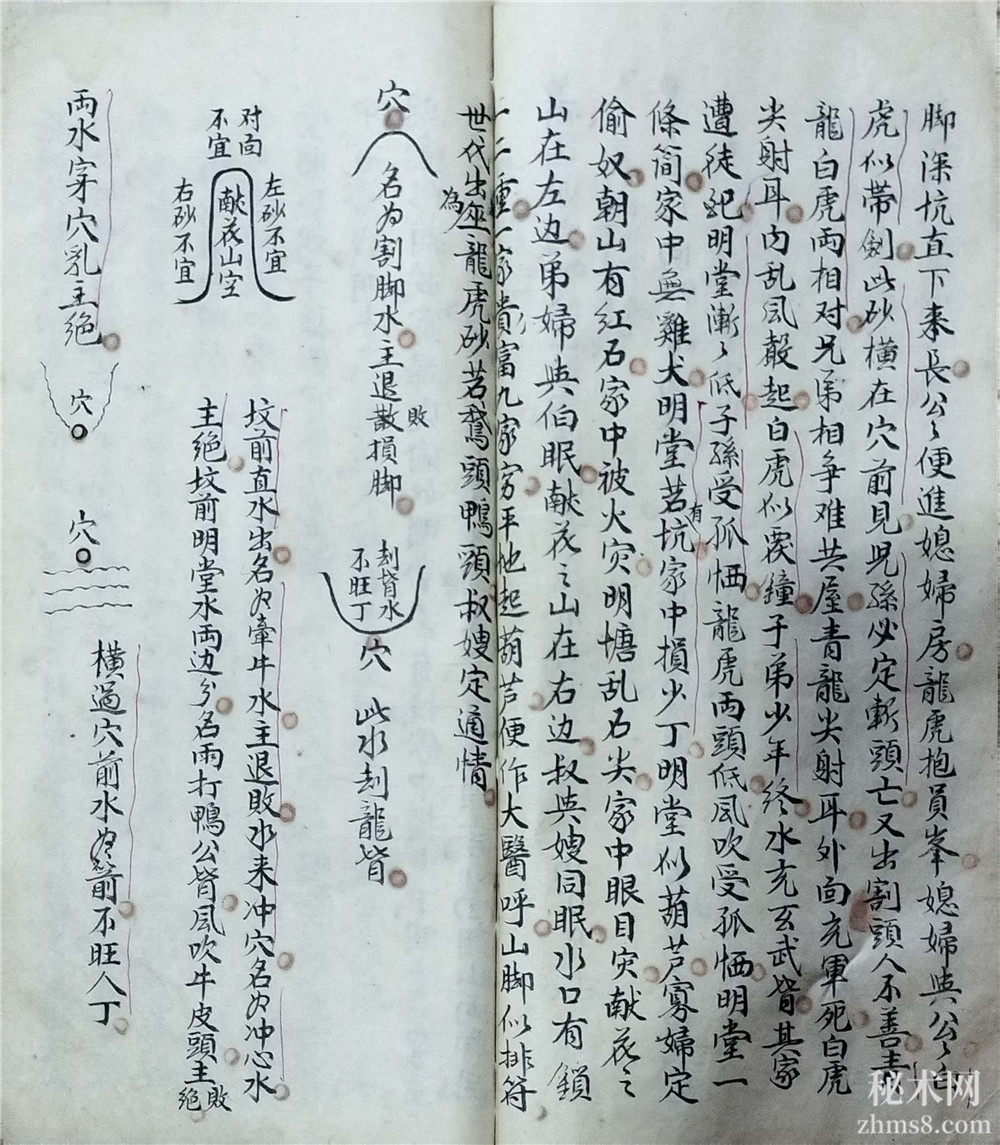 脚深坑直下来長公〻便進媳婦房龍虎抱員峯媳婦與公〻白
虎似带劍此砂横在穴前見児孫必定斬頭亡又出割頭人不善青
龍白虎両相对兄弟相争难共屋青龍尖射耳外面充軍死白虎
尖射耳内乱風聲起白虎似覆鐘子弟少年终水充玄武背其家
遭徒纪明堂漸〻低子孫受孤恓龍虎两頭低風吹受孤恓明堂一
條简家中無雞犬明堂若有坑家中損少丁明堂似葫芦寡婦定
偷奴朝山有红石家中被火灾明塘乱石尖家中眼目灾献花之
山在左边弟婦與伯眠献花之山在右边叔與嫂同眠水口有鎖
一二重一家貴富九家穷平地起葫芦便作大醫呼山脚似排符
世代出為巫龍虎砂若鵞頭鴨頸叔嫂定通情
穴
名为割脚水主退敗散損脚
刦背水
不旺丁
穴
此水刦龍背
对面
不宜
左砂不宜
献花山穴
右砂不宜
坟前直水出名为牽牛水主退敗水来冲穴名为冲心水
主绝坟前明堂水両边分名雨打鴨公背風吹牛皮頭主敗绝
両水穿穴乳主绝
穴
穴
横過穴前水为箭不旺人丁
秘术网
zhms8.com